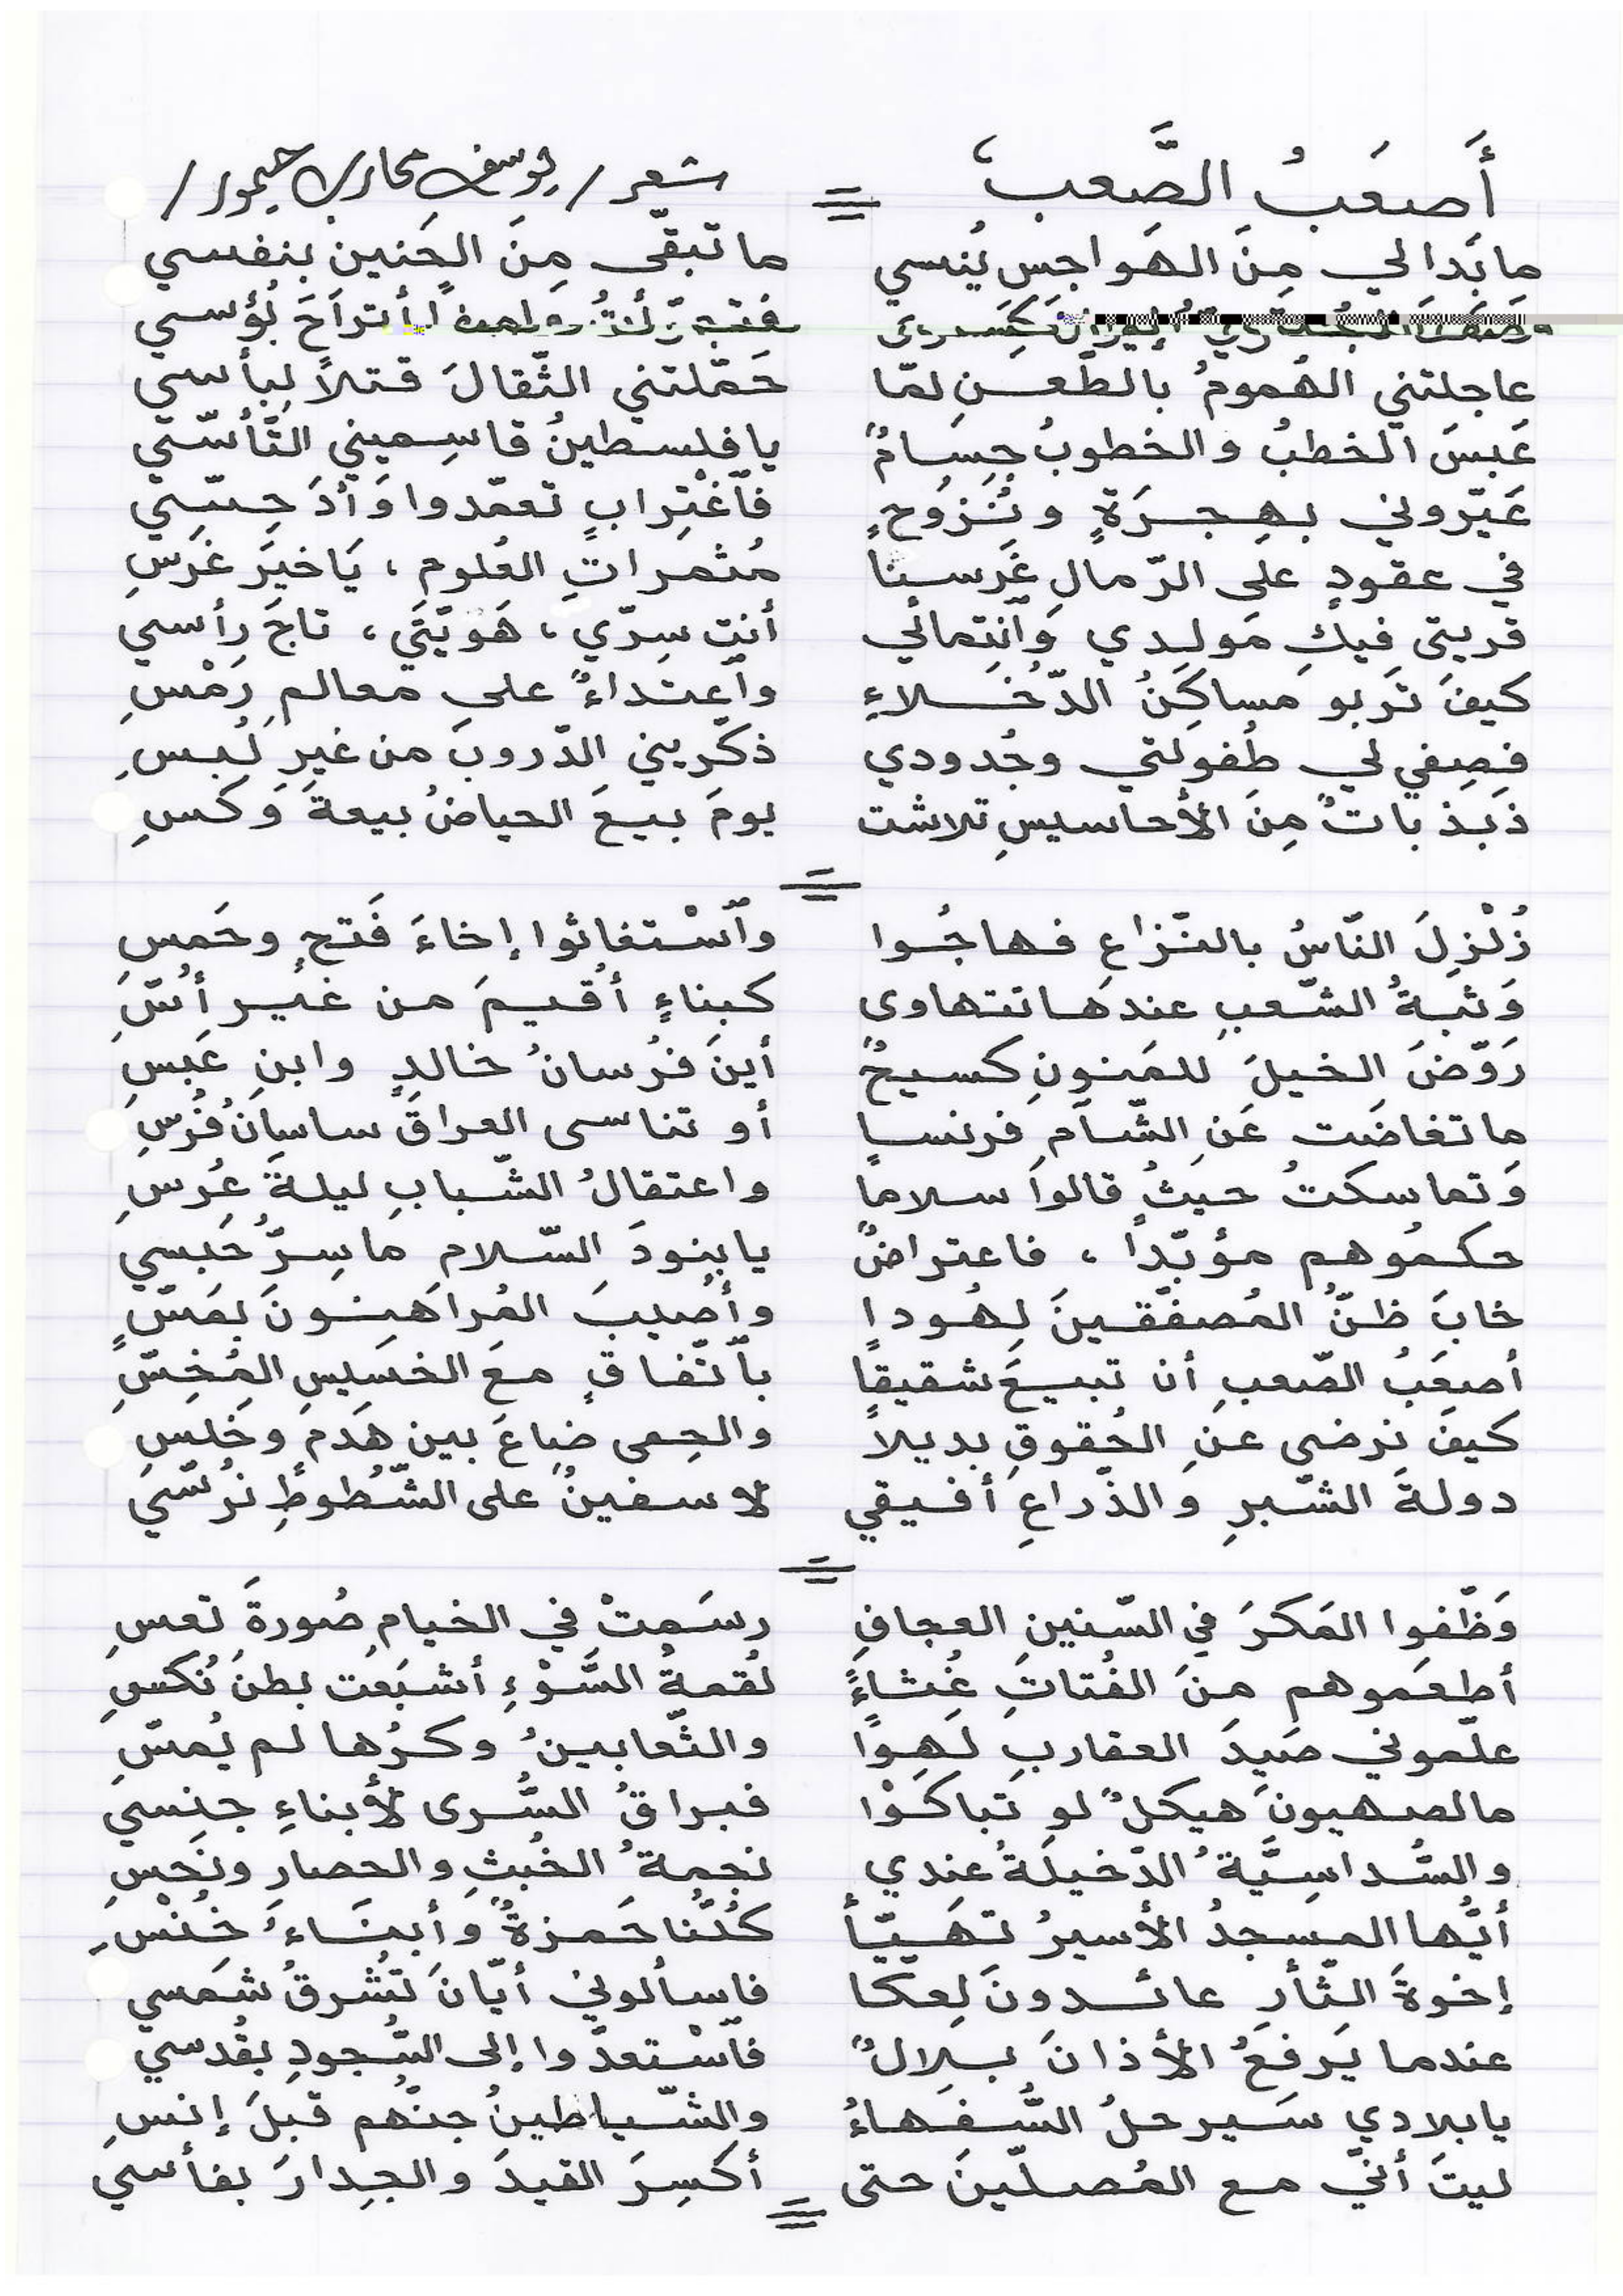 أَصعَبُ الصَّعبِ = شعر / يوسف محارب حيمور /
ما بَدا لي مِنَ الهَواجسِ يُنسي ما تَبقّى مِنَ الحَنينِ بنفسي
وَصَفَ البُحتُريّ إيوانَ كِسرى لأتراحَ بُؤسي
عاجلتني الهُمومُ بالطَّعنِ لمّا حَمّلتني الثّقالَ قتلاً لِبأسي
عَبسَ الخطبُ والخطوبُ جِسَامٌ يا فلسطينُ قاسِميني التَّأسّي
عَيّروني بهِجرَةٍ ونُزوحٍ فآغْتِرابٍ تعمّدوا وَأدَ حِسّي
في عقودٍ على الرّمالِ غَرَسنا مُثمراتِ العُلومِ ، يَا خيَر غَرسِ
قريتي فيكِ مَولدي وَآنتِمائي أنتِ سِرّي ، هَويّتَي ، تاجَ رأسي
كيفَ تَربو مَساكِنُ الدّخَلاءِ وآعتداءٌ على معالمِ رَمْسِ
فصِفي لي طُفولتي وجُدودي ذكّريني الدّروبَ من غيرِ لُبسِ
ذَبذباتٌ مِنَ الأحاسيسِ تلاشت يومَ بيعَ الحياضُ بيعةَ وَكسِ
=
زُلْزِلَ النّاسُ بالنّزاعِ فهاجُوا وآسْتغاثوا إخاءَ فَتحٍ وحَمسِ
وَثبةُ الشّعبِ عندَها تتهاوى كبناءٍ أُقيمَ من غيرِ أُسِّ
رَوّضَ الخيلَ للمَنونِ كسيحٌ أينَ فرُسانُ خالدٍ وابنِ عَبسِ
ما تغاضَت عَنِ الشّآمِ فرنسا أو تناسى العراقَ ساسانُ فُرسِ
وَتماسكتُ حيثُ قالوا سلاما واعتقالُ الشّبابِ ليلةَ عُرسِ
حكمُوهم مؤبّداً ، فاعتراضٌ يا بنودَ السّلام ما سِرُّ حَبسي
خابَ ظنُّ المُصفّقينَ لِهُودا وأُصيبَ المُراهَنونَ بمَسٍّ
أصعَبُ الصّعبِ أن تبيعَ شقيقاً بآتّفاقٍ معَ الخسَيسِ المُخِسِّ
كيفَ نرضى عنِ الحُقوقِ بديلاً والحِمى ضاعَ بين هَدمٍ وَخَلسِ
دولةَ الشّبرِ والذّراعِ أفيقي لا سفينٌ على الشّطُوطِ نرُسّي
=
وَظّفوا المَكرَ في السّنينِ العجافِ رسَمتْ في الخيامِ صُورةَ تَعسِ
أطعَموهم منَ الفُتاتِ غُثاءً لُقمةُ السَّوْءِ أشبَعَت بطنَ نُكسِ
علّموني صَيدَ العقاربِ لَهواً والثّعابينُ وكرُها لم يُمسِّ
ما لصهيونَ هيكلٌ لو تَباكَوْا فبراقُ السُّرى لأبناءِ جنسي
والسُّداسِيَّةُ الدّخيلةُ عندي نجمةُ الخُبثِ والحصارِ ونَحسِ
أيُّها المسَجدُ الأسيرُ تهَيّأ كلُّنا حَمزةٌ وأبنَاءُ خُنْسِ
إخوةَ الثّأرِ عائدونَ لِعكّا فاسألوني أيّانَ تُشرقُ شَمسي
عندما يَرفعُ الأذانَ بلالٌ فآسْتعدّوا إلى السُّجودِ بقُدسي
يا بلادي سَيرحلُ السُّفهاءُ والشّياطينُ جنّهُم قبلَ إنسِ
ليتَ أنّي مع المُصلّينَ حتى أكسِرَ القيدَ والجِدارَ بفأسي
=